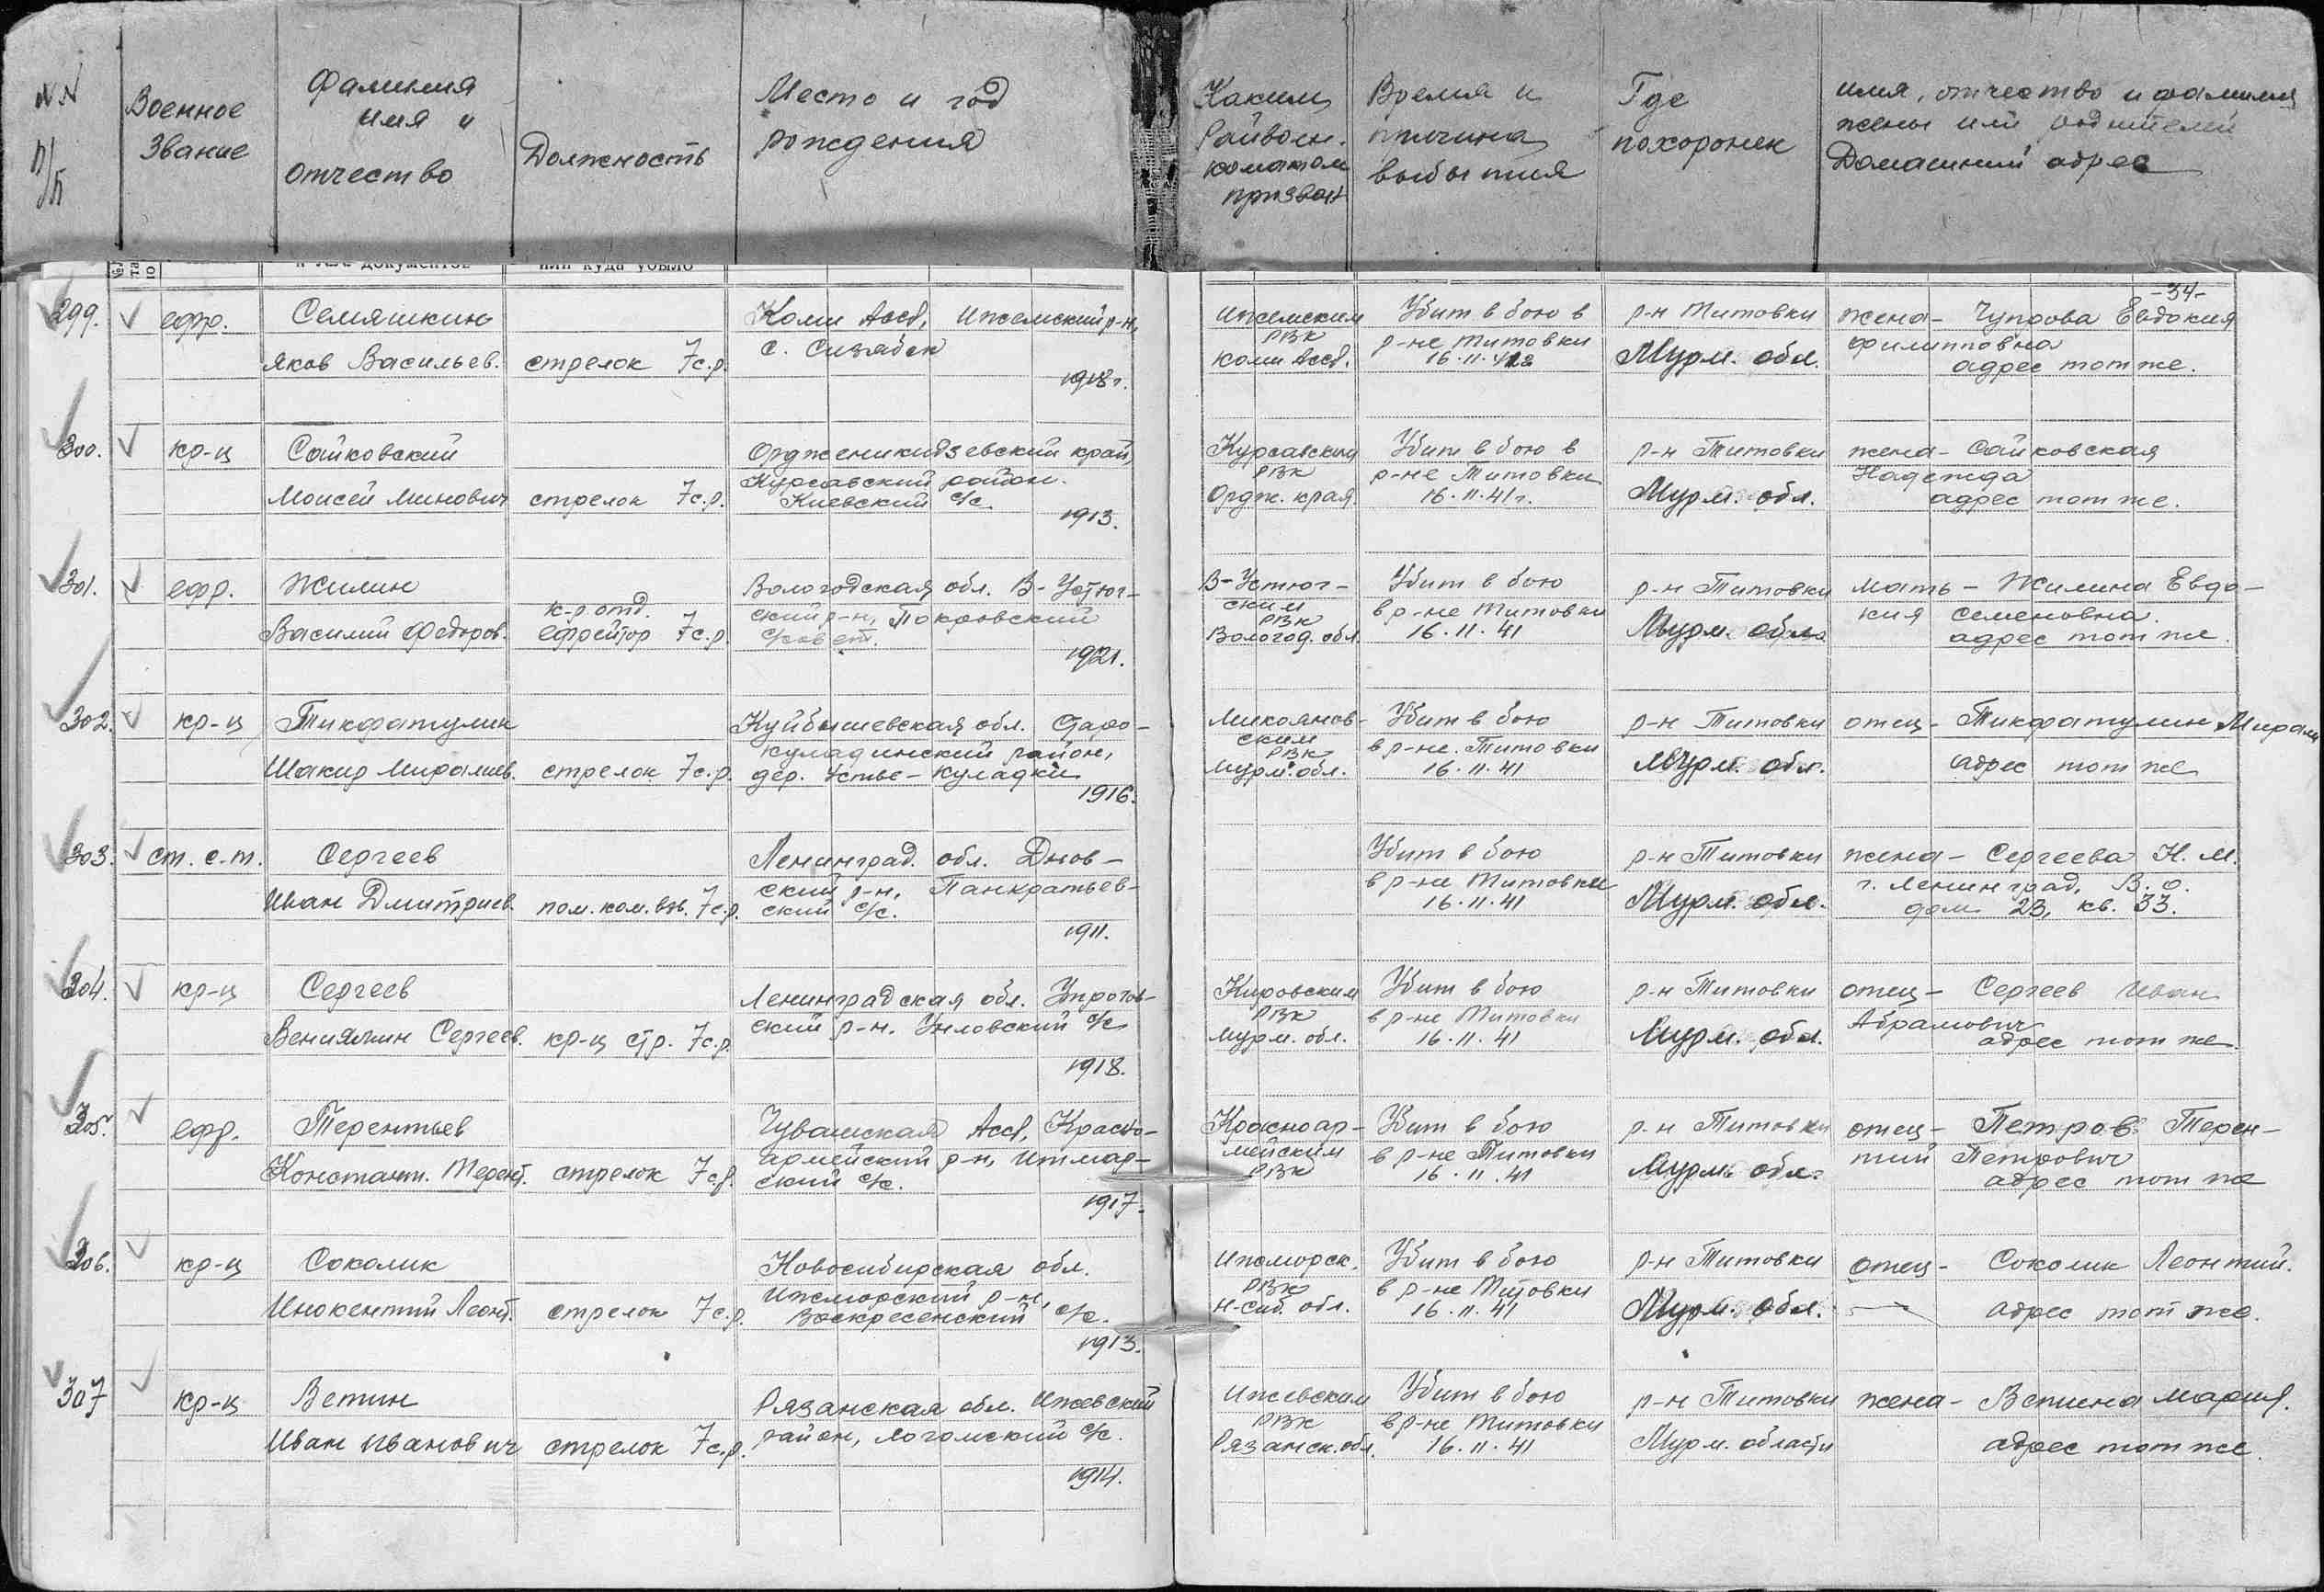 NN п/п
Военное Звание
Фамилия имя и отчество
Должность
Место и год рождения
Каким Райвоен. коматом призван
Время и причина выбытия
Где похоронен
имя, отчество и фамилия жены или родителей Домашний адрес
и №№ документов
или куда убыло
-34-
299. ефр. Семяшкин Коми Асср, Ижемский р-н, Ижемским Убит в бою в р-н Титовки жена - Чупрова Евдокия
с. Сизябск РВк р-не Титовки Филипповна
Яков Васильев. стрелок 7с.р. Коми Асср. 16.11.41г Мурм. обл. адрес тот же.
1918г.
300. кр-ц Сайковский Орджоникидзевский край, Курсавским Убит в бою в р-н Титовки жена - Сайковская
Курсавский район. РВк р-не Титовки Надежда
Моисей Минович стрелок 7с.р. Киевский с/с. Ордж. края. 16.11.41г. Мурм. обл. адрес тот же.
1913.
301. ефр. Жилин Вологодская обл. В-Устюг- В-Устюг- Убит в бою р-н Титовки мать - Жилина Евдо-
к-р. отд. ский р-н, Покровский ским РВк в р-не Титовки кия Семеновна.
Василий Федоров. ефрейтор 7с.р. с/совет. Вологод. обл. 16.11.41 Мурм. обл. адрес тот же.
1921.
302. кр-ц Тикфатулин Куйбышевская обл. Старо- Микоянов- Убит в бою р-н Титовки отец - Тикфатулин Мирали
кулаткинский район, ским РВк в р-не. Титовки
Шакир Миралиев. стрелок 7с.р. дер. Устье-Куладки Мурм. обл. 16.11.41 Мурм. обл. адрес тот же
1916.
303. ст. с-т. Сергеев Ленинград. обл. Днов- Убит в бою р-н Титовки жена - Сергеева Н. М.
ский р-н, Панкратьев- в р-не Титовки г. Ленинград, В. о.
Иван Дмитриев. пом. ком. взв. 7с.р. ский с/с. 16.11.41 Мурм. обл. дом 23, кв. 33.
1911.
304. кр-ц Сергеев Ленинградская обл. Кировским Убит в бою р-н Титовки отец - Сергеев Иван
ский р-н. с/с РВк в р-не Титовки Абрамович
Вениямин Сергеев. кр-ц стр. 7с.р. Мурм. обл. 16.11.41 Мурм. обл. адрес тот же.
1918.
305. ефр. Терентьев Чувашская Асср, Красно- Красноар- Убит в бою р-н Титовки отец - Петров Терен-
армейский р-н, мейским в р-не Титовки тий Петрович
Констант. Терент. стрелок 7с.р. ский с/с. РВк 16.11.41 Мурм. обл. адрес тот же
1917.
306. кр-ц Соколик Новосибирская обл. Ижморск. Убит в бою р-н Титовки отец - Соколик Леонтий.
Ижморский р-н, РВк в р-не Титовки
Инокентий Леонт. стрелок 7с.р. Воскресенский с/с. Н-сиб. обл. 16.11.41 Мурм. обл. адрес тот же.
1913.
307 кр-ц Ветин Рязанская обл. Ижевский Ижевским Убит в бою р-н Титовки жена - Ветина Мария.
район, с/с. РВк в р-не Титовки
Иван Иванович стрелок 7с.р. Рязанск. обл. 16.11.41 Мурм. области адрес тот же.
1914.